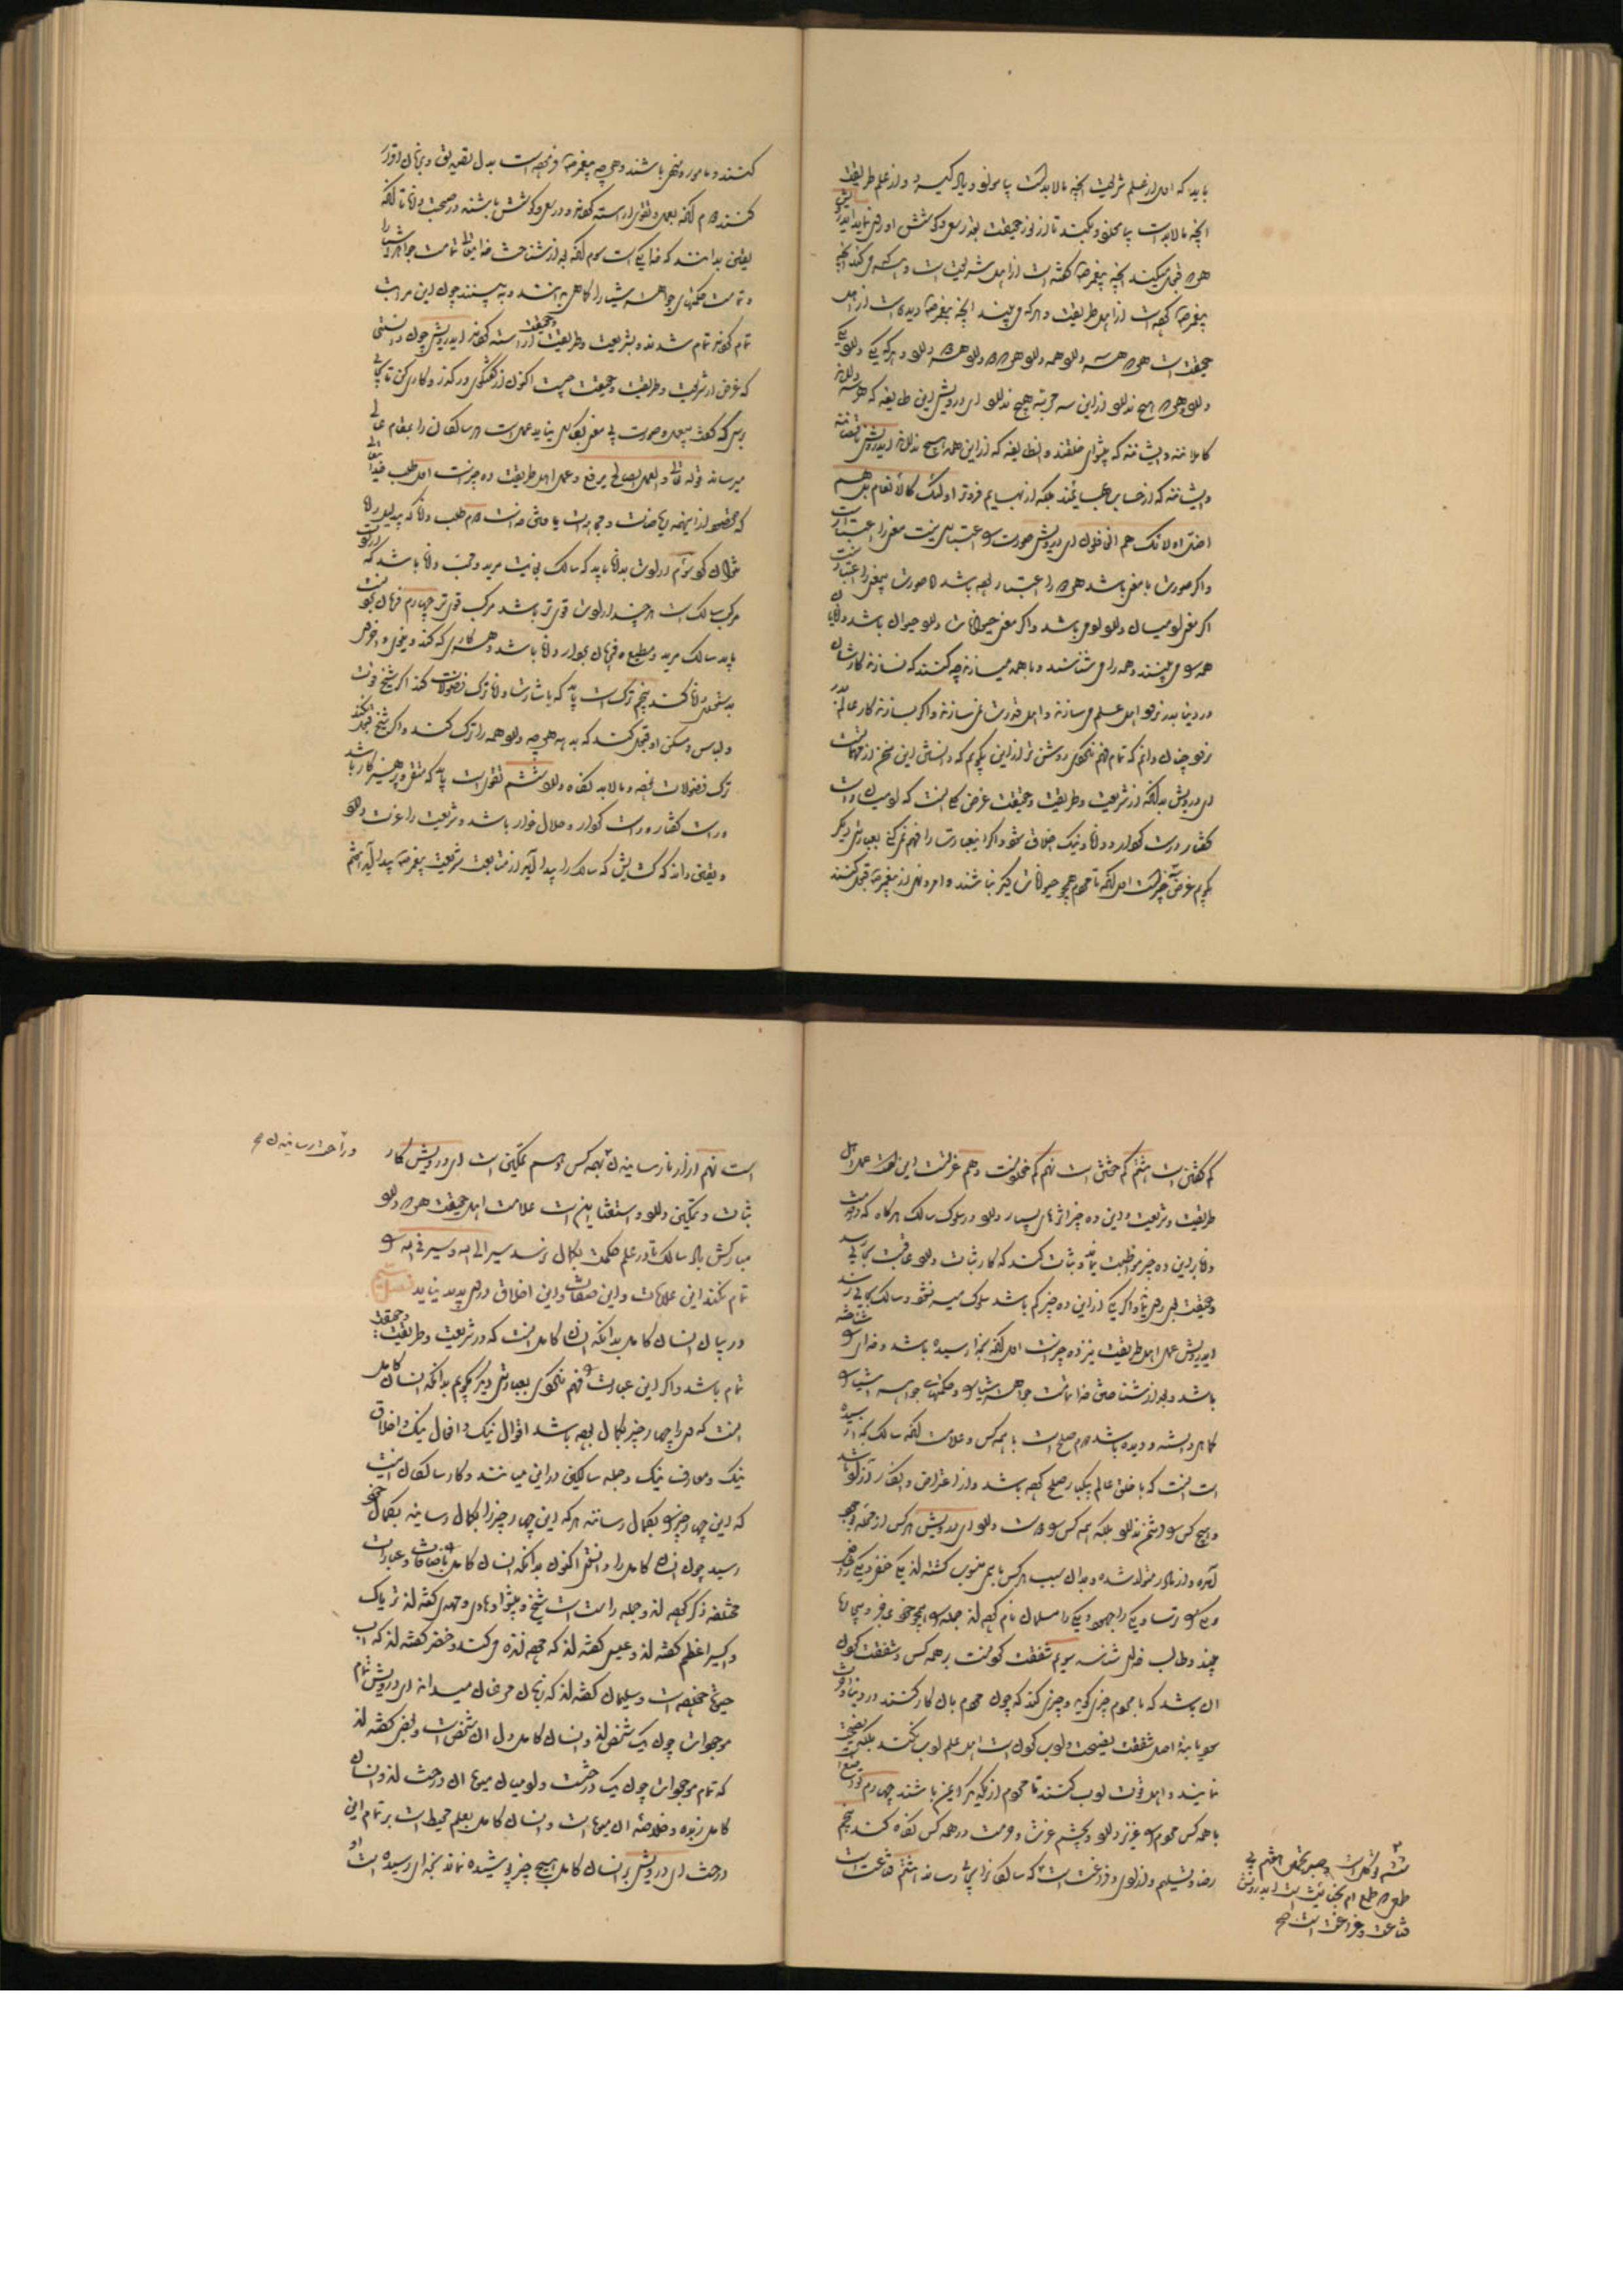 باید که اول از علم شریعت آنچه مالابدست بیاموزد و یاد گیرد و از علم طریقت
آنچه مالابد است بیاموزد و بکند تا از نور حقیقت بقدر سعی و کوشش او روی نماید ای درویش
هر که قبول میکند آنچه پیغمبر گفته است از اهل شریعت است و هر که میکند آنچه
پیغمبر کرده است از اهل طریقت و هر که می بیند آنچه پیغمبر دیده است از اهل
حقیقت است هر که هر سه دارد هر سه دارد و هر که دو دارد دو دارد و هر که یکی دارد یکی
دارد و هر که هیچ ندارد از این سه مرتبه هیچ ندارد ای درویش این طایفه که هر سه دارند
کاملانند و ایشانند که پیشوای خلقند و آن طایفه که از این همه هیچ ندارند ای درویش ناقصانند
و ایشانند که از حساب بهایمند بلکه از بهایم فروتر اولئک کالانعام بل هم
اضل اولئک هم الغافلون ای درویش صورت را اعتباری نیست معنی را اعتبار است
و اگر صورت با معنی باشد هر دو را اعتبار بود باشد اما صورت بی معنی را اعتبار نیست
اگر معنی آدمیان دارد آدمی باشد و اگر معنی حیوانات دارد حیوان باشد دانایان
همه را می بینند و همه را می شناسند و با همه میسازند چه کنند که نسازند کارشان
در دنیا بدر نرود اهل علم می سازند و اهل قدرت می سازند و اگر نسازند کار عالم بدر
نرود چنان دانم که تمام فهم نکردی روشن تر از این بگویم که دانستن این سخن از مهمات است
ای درویش بدانکه از شریعت و طریقت و حقیقت غرض کلی آنست که آدمیان راست
گفتار و راست کردار و دانا و نیک اخلاق شوند و اگر این عبارت را فهم نمی کنی بعبارتی دیگر
بگویم غرض سه چیز است اول آنکه تا مردم همچو حیوانات دیگر نباشند و امر و نهی از پیغمبر قبول کنند
کنند و مامور و منهی باشند و هر چه پیغمبر فرموده است بدل تصدیق و بزبان اقرار
کنند دوم آنکه بعمل و تقوی آراسته گردند و در سعی و کوشش باشند و در صحبت دانا تا آنکه
یقین بدانند که خدا یکی است سوم آنکه بعد از شناخت خدای تعالی تمامت جواهر اشیا را
و تمامت حکمتهای جواهر اشیا را کماهی بدانند و ببینند چون این مراتب
تمام کردند تمام شدند و بشریعت و طریقت و حقیقت آراسته گردند ای درویش چون دانستی
که غرض از شریعت و طریقت و حقیقت چیست اکنون از گفتگوی درگذر و کاری کن تا بجائی
برسی که گفت بی عمل و صورت بی معنی بکاری نیاید عمل است که سالکان را بمقام عالی
میرساند قوله تعالی و العمل الصالح یرفعه و عمل اهل طریقت ده چیز است اول طلب خدای تعالی
که مقصود از اینهمه ریاضات و مجاهدات یافتن خداست دوم طلب داناست که بی دلیل راه
نتوان کرد سوم ارادت است بدانا باید که سالک بغایت مرید و محب دانا باشد که ارادت
مرکب سالک است هر چند ارادت قوی تر باشد مرکب قوی تر چهارم فرمان بردن است
باید سالک مرید و مطیع و فرمان بردار دانا باشد و هر کاری که کند دنیوی و اخروی
بدستوری دانا کند پنجم ترک است باید که باشارت دانا ترک فضولات کند اگر شیخ قوت
و لباس و مسکن او قبول کند که بدهد هر چه دارد همه را ترک کند و اگر شیخ قبول نکند
ترک فضولات بود و مالابد نگاه دارد ششم تقوی است باید که متقی و پرهیزکار باشد
و راست گفتار و راست کردار و حلال خوار باشد و شریعت را عزیز دارد
و یقین داند که گشایش که سالک را پیدا آید از متابعت شریعت پیغمبر پیدا آید هفتم
کم گفتن است هشتم کم خفتن است نهم کم خوردنست دهم عزلت است این است عمل اهل
طریقت و شریعت و این ده چیز اثرهای بسیار دارد در سلوک سالک هر گاه که در صحبت
دانا بر این ده چیز مواظبت نماید و ثبات کند که کار ثبات دارد عاقبت بجائی رسد
و حقیقت بر وی روی نماید و اگر یکی از این ده چیز کم باشد سلوک میسر نشود و سالک بجائی نرسد
ای درویش عمل اهل حقیقت نیز ده چیز است اول آنکه بخدا رسیده باشد و خدای را شناخته
باشد و بعد از شناختن خدا تمامت جواهر اشیا را و حکمتهای جواهر اشیا را
کماهی دانسته و دیده باشد دوم صلح است با همه کس و علامت آنکه سالک بخدا رسیده
است آنست که با خلق عالم بیکبار صلح کرده باشد و از اعتراض و انکار آزاد باشد
و هیچ کس را دشمن ندارد بلکه همه کس را دوست دارد ای درویش هر کس از مرتبه خود
آمده و از مادر متولد شده و بدان سبب هر کس باسمی منسوب گشته اند یکی حنفی و یکی شافعی
و یکی را ترسا و یکی را جهود و یکی را مسلمان نام کرده اند جمله را همچو خود عاجز و بیچاره
بیند و طالب خدای شناسد سوم شفقت کردنست بر همه کس و شفقت کردن
آن باشد که با مردم چیزی گوید و چیزی کند که چون مردم بآن کار کنند در دنیا و آخرت
سود یابند اهل شفقت نصیحت و ادب کردن است اهل علم ادب نکنند بلکه نصیحت
نمایند و اهل قدرت ادب کنند تا مردم از یکدیگر ایمن باشند چهارم تواضع است
با همه کس مردم را عزیز دارد و بچشم عزت و حرمت در همه کس نگاه کند پنجم
رضا و تسلیم و آزادی و فراغت است که سالک را بخدای رساند هشتم قناعت است
ششم توکل است و صبر و تحمل هفتم بی
طمعی است که طمع ام الخبائث است ای درویش
قناعت و فراغت است صح
است نهم آزار نارسانیدن بهمه کس دهم تمکین است ای درویش کار
و راحت رسانیدن صح
ثبات و تمکین دارد و استغنا اینست علامت اهل حقیقت هر که دارد
مبارکش باد سالک تا در علم حکمت بکمال نرسد سیر الی الله و سیر فی الله را
تمام نکند این علامات و این صفات و این اخلاق در وی پدید نیاید فصل
در بیان انسان کامل بدانکه انسان کامل آنست که در شریعت و طریقت و حقیقت
تمام باشد و اگر این عبارت را فهم نکردی بعبارتی دیگر بگویم بدانکه انسان کامل
آنست که وی را چهار چیز بکمال بوده باشد اقوال نیک و افعال نیک و اخلاق
نیک و معارف نیک و جمله سالکین در این میانند و کار سالکان اینست
که این چهار چیز را بکمال رسانند هر که این چهار چیز را بکمال رسانید بکمال خود
رسید چون انسان کامل را دانستی اکنون بدانکه انسان کامل را باضافات و عبارات
مختلفه ذکر کرده اند و جمله راست است شیخ و پیشوا و هادی و مهدی گفته اند تریاک
و اکسیر اعظم گفته اند و عیسی گفته اند که مرده زنده می کند و خضر گفته اند که آب
حیات خورده است و سلیمان گفته اند که زبان مرغان میداند ای درویش تمام
موجودات چون یک شخص اند و انسان کامل دل آن شخص است و بعضی گفته اند
که تمام موجودات چون یک درخت و آدمیان میوه آن درخت اند و انسان
کامل زبده و خلاصه آن میوه است و انسان کامل بعلم محیط است بر تمام این
درخت ای درویش بر انسان کامل هیچ چیز پوشیده نماند بخدای رسیده است